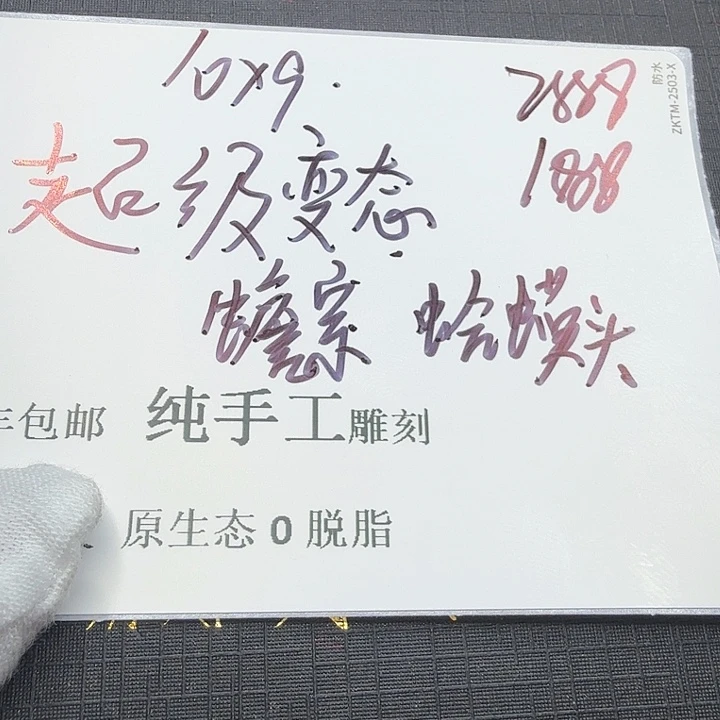 10×9.
2888
防水
ZKTM-2503-X
1868
超级变态
蟾宗 蛤蟆头
包邮 纯手工雕刻
原生态0脱脂